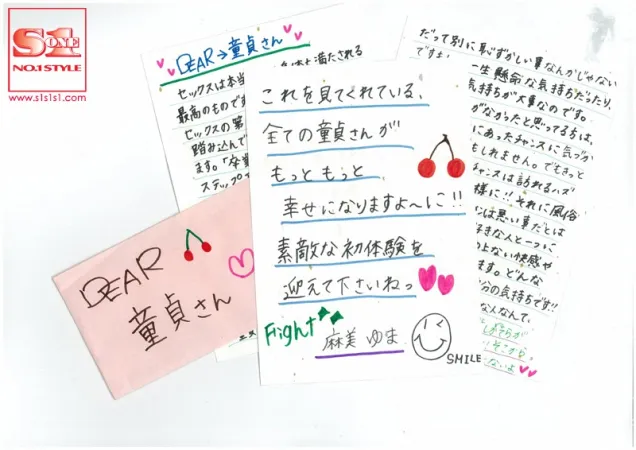 S1
ONE
NO.1 STYLE
www.s1s1s1.com
DEAR→童貞さん
満たされる
セックスは本当
最高のものです
セックスの第
踏み込んで
ます。「卒業
ステップ
DEAR
童貞さん
これを見てくれている、
全ての童貞さんが
もっと もっと
幸せになりますよ〜に!!
素敵な初体験を
迎えて下さいねっ
Fight
麻美ゆま
SMILE
だって別に恥ずかしい事なんかじゃない
ですし
一生懸命な気持ちだったり、
気持ちが大事なのです。
がなかったと思ってる方は、
にあったチャンスに気づか
もしれません。でもきっと
チャンスは訪れるハズ
様に!!それに風俗
は悪い事だとは
好きな人と一つに
ない快感や
ます。どんな
分の気持ちです!!
な人なんて、
そこから
ないよ